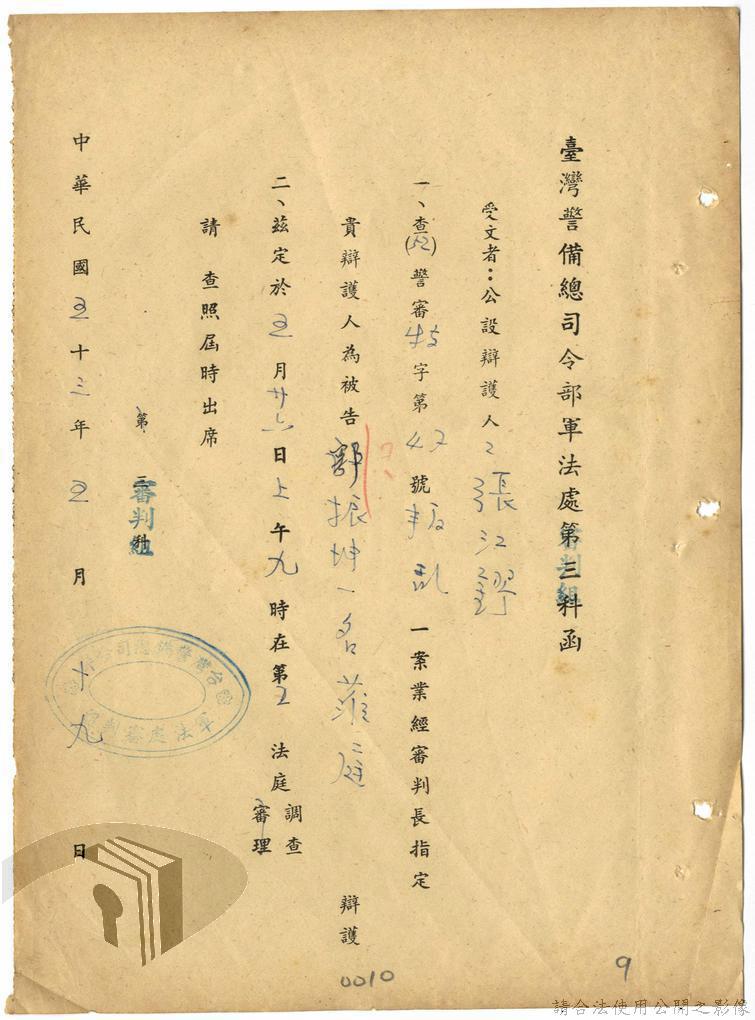 臺灣警備總司令部軍法處第三科函
審判組
受文者：公設辯護人
一、查(52)警審特字第42號叛乱一案業經審判長指定
貴辯護人為被告郭振坤一名蒞庭辯護
二、茲定於五月廿六日上午九時在第五法庭調查
審理
請查照屆時出席
第三科
審判組
中華民國五十三年五月十九日
0010
9
請合法使用公開之影像